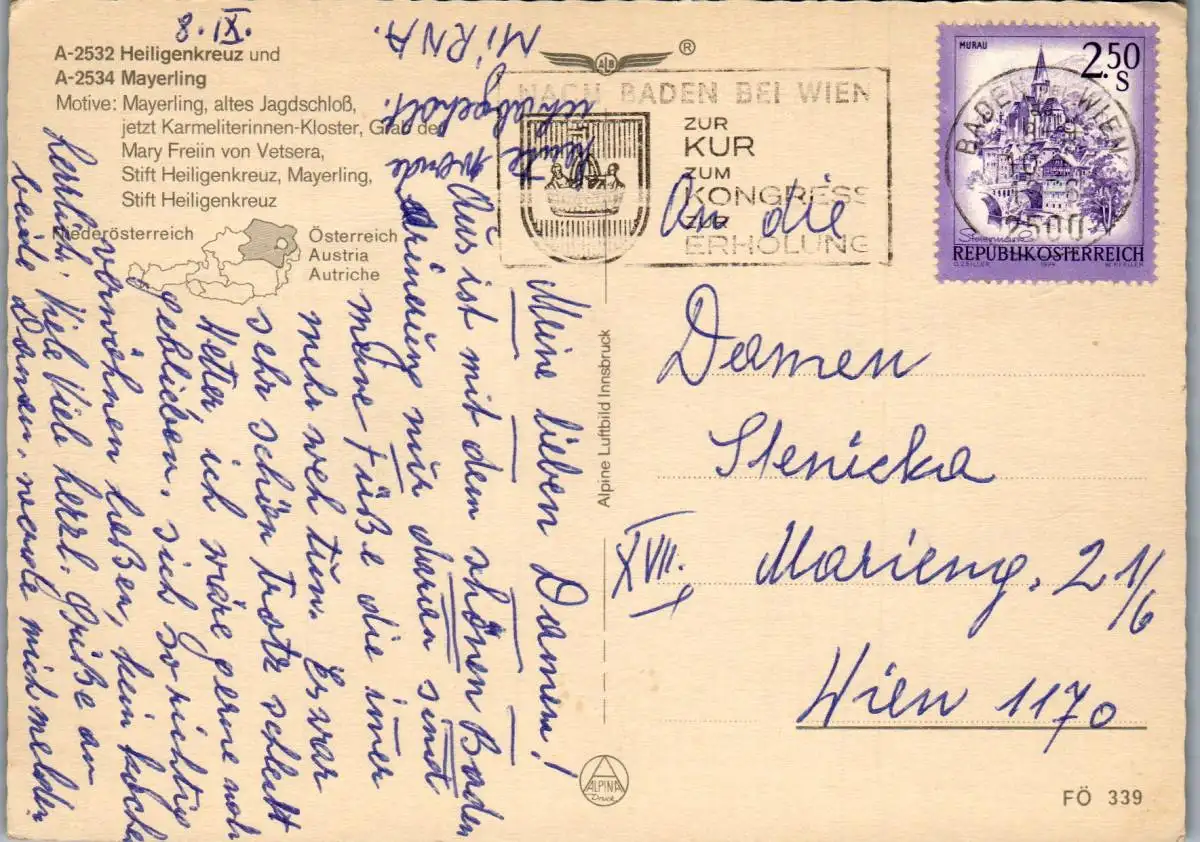 A-2532 Heiligenkreuz und
A-2534 Mayerling
Motive: Mayerling, altes Jagdschloß,
jetzt Karmeliterinnen-Kloster, Grab der
Mary Freiin von Vetsera,
Stift Heiligenkreuz, Mayerling,
Stift Heiligenkreuz
Niederösterreich
Österreich
Austria
Autriche
8. XI.
Meine lieben Damen!
Aus ist mit dem schönen Baden
Erinnerung nur daran sind
meine Füße die imer
mehr weh tun. Es war
sehr schön trotz schlecht
Wetter ich wäre gerne noch
geblieben, sich so richtig
verwöhnen laßen, kein kochen
herrlich. Viele Viele herzl. Grüße an
beide Damen, werde mich melden
heute werde
ich abgeholt.
MiRNA.
ALB
®
NACH BADEN BEI WIEN
ZUR
KUR
ZUM
KONGRESS
ZUR
ERHOLUNG
MURAU
2.50
S
BADEN BEI WIEN
2500
Steiermark
REPUBLIK ÖSTERREICH
O.ZEILLER 1974 W.PFEILER
An die
Damen
Stenicka
XVII. Marieng. 2 1/6
Wien 1170
Alpine Luftbild Innsbruck
ALPINA
Druck
FÖ 339